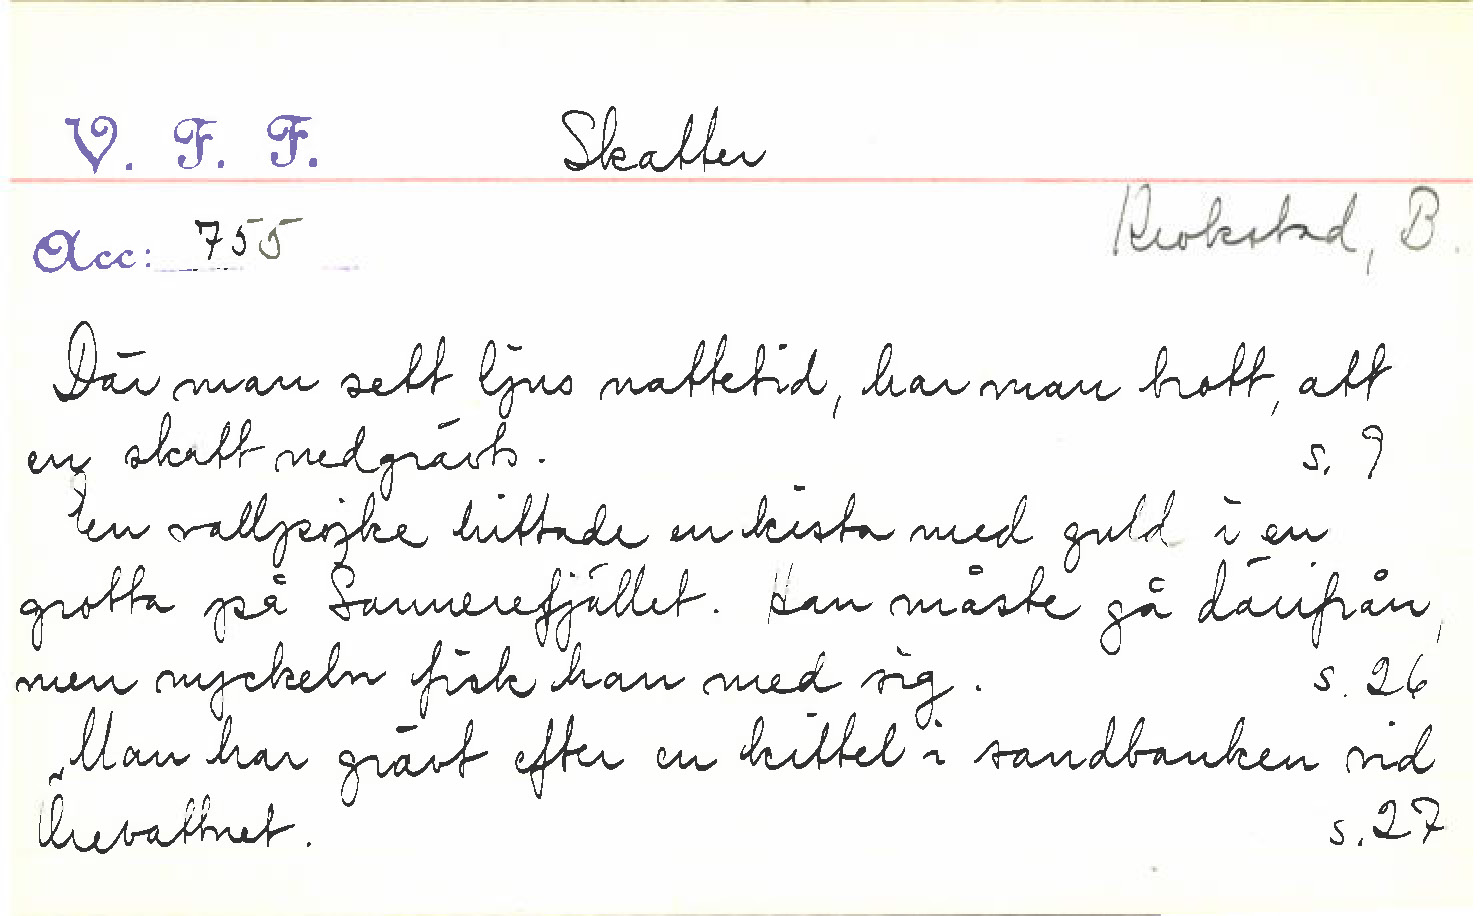 V. F. F. Skatter
Acc: 755 Krokstad, B.
Där man sett ljus nattetid, har man trott, att
en skatt nedgrävts. s. 9
En vallpojke hittade en kista med guld i en
grotta på Sannerefjället. Han måste gå därifrån,
men nyckeln fick han med sig. s. 26
Man har grävt efter en kittel i sandbanken vid
s. 27